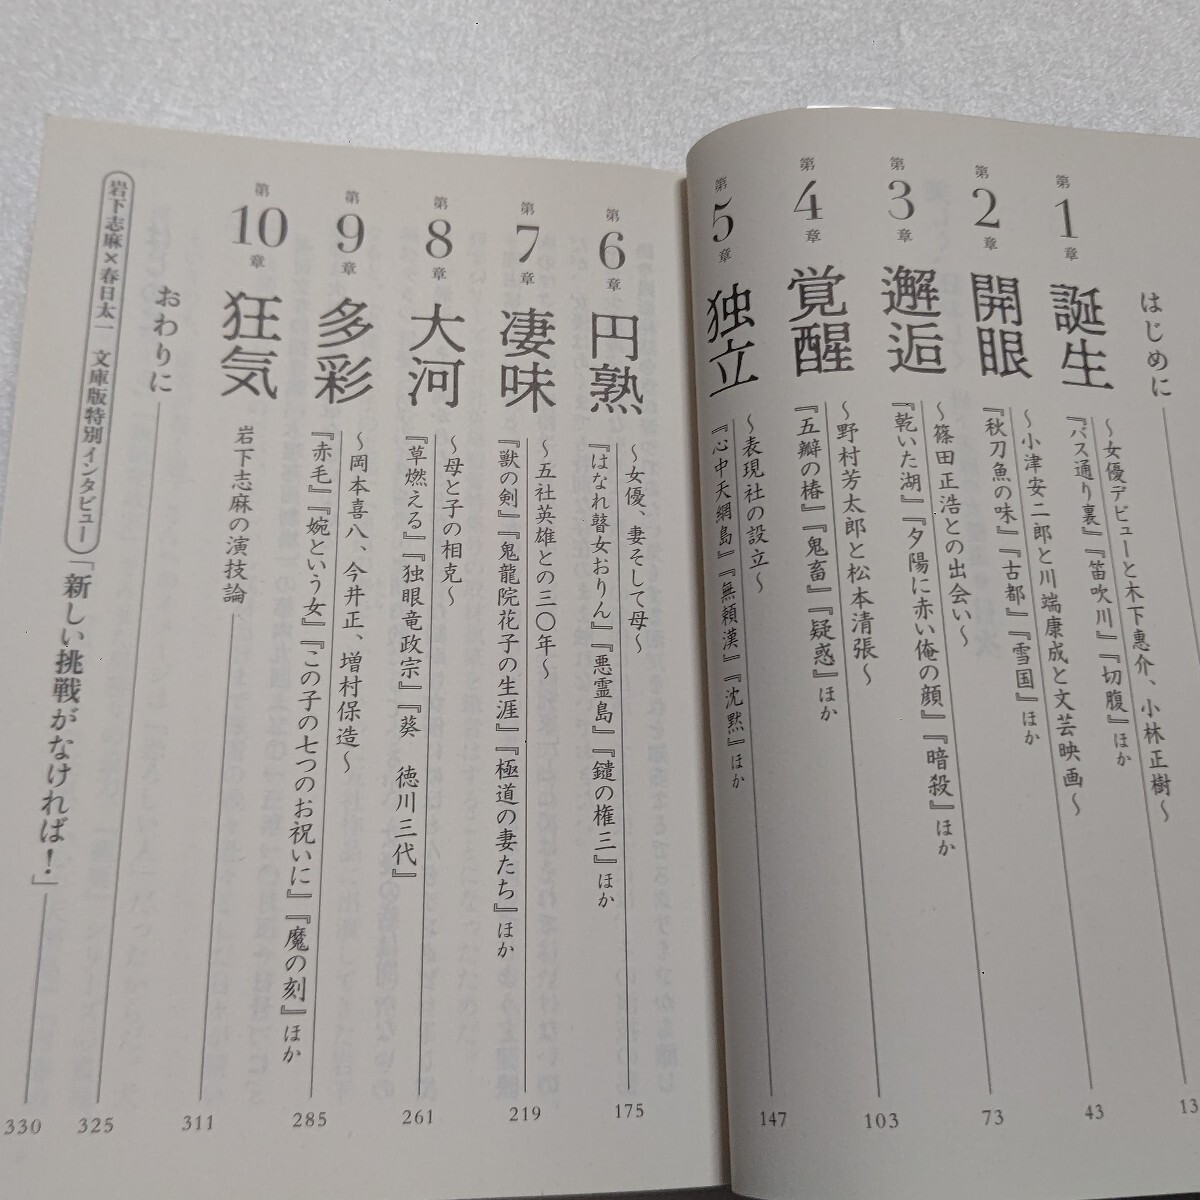 はじめに
第1章 誕生
～女優デビューと木下惠介、小林正樹～
『バス通り裏』『笛吹川』『切腹』ほか
13
第2章 開眼
～小津安二郎と川端康成と文芸映画～
『秋刀魚の味』『古都』『雪国』ほか
43
第3章 邂逅
～篠田正浩との出会い～
『乾いた湖』『夕陽に赤い俺の顔』『暗殺』ほか
73
第4章 覚醒
～野村芳太郎と松本清張～
『五瓣の椿』『鬼畜』『疑惑』ほか
103
第5章 独立
～表現社の設立～
『心中天網島』『無頼漢』『沈黙』ほか
147
第6章 円熟
～女優、妻そして母～
『はなれ瞽女おりん』『悪霊島』『鑓の権三』ほか
175
第7章 凄味
～五社英雄との三〇年～
『獣の剣』『鬼龍院花子の生涯』『極道の妻たち』ほか
219
第8章 大河
～母と子の相克～
『草燃える』『独眼竜政宗』『葵　徳川三代』
261
第9章 多彩
～岡本喜八、今井正、増村保造～
『赤毛』『婉という女』『この子の七つのお祝いに』『魔の刻』ほか
285
第10章 狂気
岩下志麻の演技論
311
おわりに
325
岩下志麻×春日太一　文庫版特別インタビュー「新しい挑戦がなければ！」
330